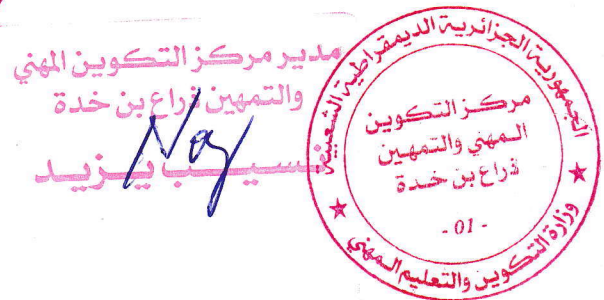 مدير مركز التكوين المهني
والتمهين ذراع بن خدة
نسيب يزيد
الجمهورية الجزائرية الديمقراطية الشعبية
مركز التكوين
المهني والتمهين
ذراع بن خدة
- 01 -
وزارة التكوين والتعليم المهني